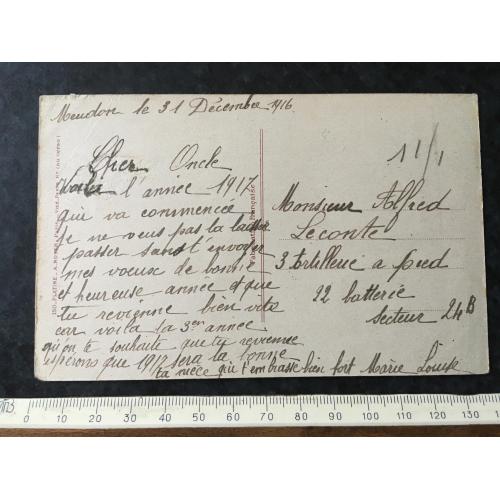 Meudon le 31 Décembre 1916
Cher Oncle
Voila l'année 1917
qui va commencée
je ne veus pas la laisser
passer sans t'envoyer
mes voeux de bonne
et heureuse année et que
tu revienne bien vite
car voila la 3em année
qu'on te souhaite que tu revienne
esperons que 1917 sera la bonne
ta nièce qui t'embrasse bien fort Marie Louise
11/1
Monsieur Alfred
Leconte
3 artillerie a pied
22 batterie
Secteur 24B
Fabrication française
0 10 20 30 40 50 60 70 80 90 100 110 120 130 140